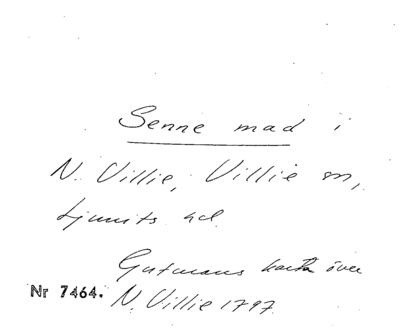 Senne mad i
N. Villie, Villie sn,
Ljunits hd.
Gutmans karta över
Nr 7464. N. Villie 1797.